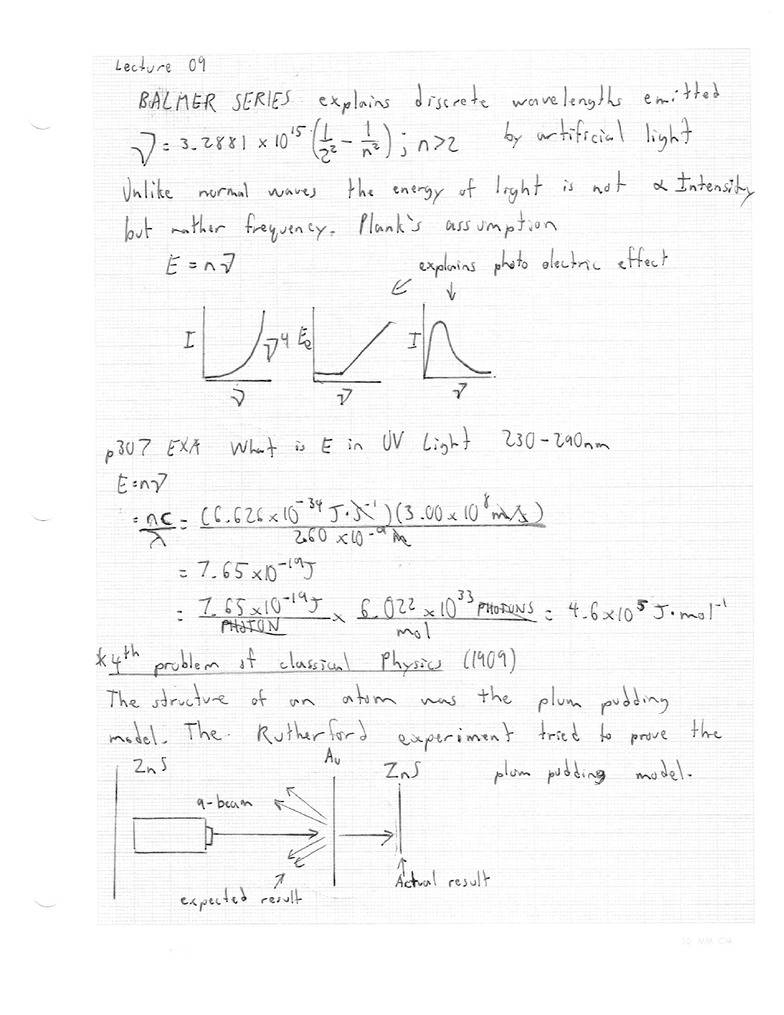 Lecture 09
BALMER SERIES explains discrete wavelengths emitted
ν = 3.2881 × 10¹⁵ (1/2² - 1/n²) ; n>2 by artificial light
Unlike normal waves the energy of light is not ∝ Intensity
but rather frequency. Plank's assumption
E = nν
explains photo electric effect
I ν⁴ Ee I
ν ν ν
p307 EXA What is E in UV Light 230-290nm
E=nν
= nc/λ = (6.626×10⁻³⁴ J·s⁻¹)(3.00×10⁸ m/s) / 2.60 ×10⁻⁹ m
= 7.65×10⁻¹⁹J
= 7.65×10⁻¹⁹J/PHOTON × 6.022 ×10³³ PHOTONS/mol = 4.6×10⁵ J·mol⁻¹
*4th problem of classical Physics (1909)
The structure of an atom was the plum pudding
model. The Rutherford experiment tried to prove the
plum pudding model.
ZnS Au ZnS
α-beam
Actual result
expected result
10 MM CM